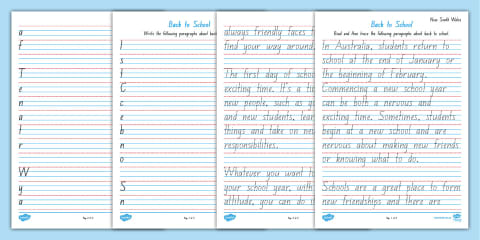 a
f
T
e
n
a
t
r
W
y
a
Back to School
Write the following paragraphs about back
I
s
t
C
c
e
b
n
o
S
n
always friendly faces t
find your way around.
The first day of schoo
exciting time. It's a tim
new people, such as
and new students, lear
things and take on new
responsibilities.
Whatever you want t
your school year, with
attitude, you can do it
New South Wales
Back to School
Read and then trace the following paragraphs about back to school.
In Australia, students return to
school at the end of January or
the beginning of February.
Commencing a new school year
can be both a nervous and
exciting time. Sometimes, students
begin at a new school and are
nervous about making new friends
or knowing what to do.
Schools are a great place to form
new friendships and there are
twinkl
twinkl
twinkl
twinkl